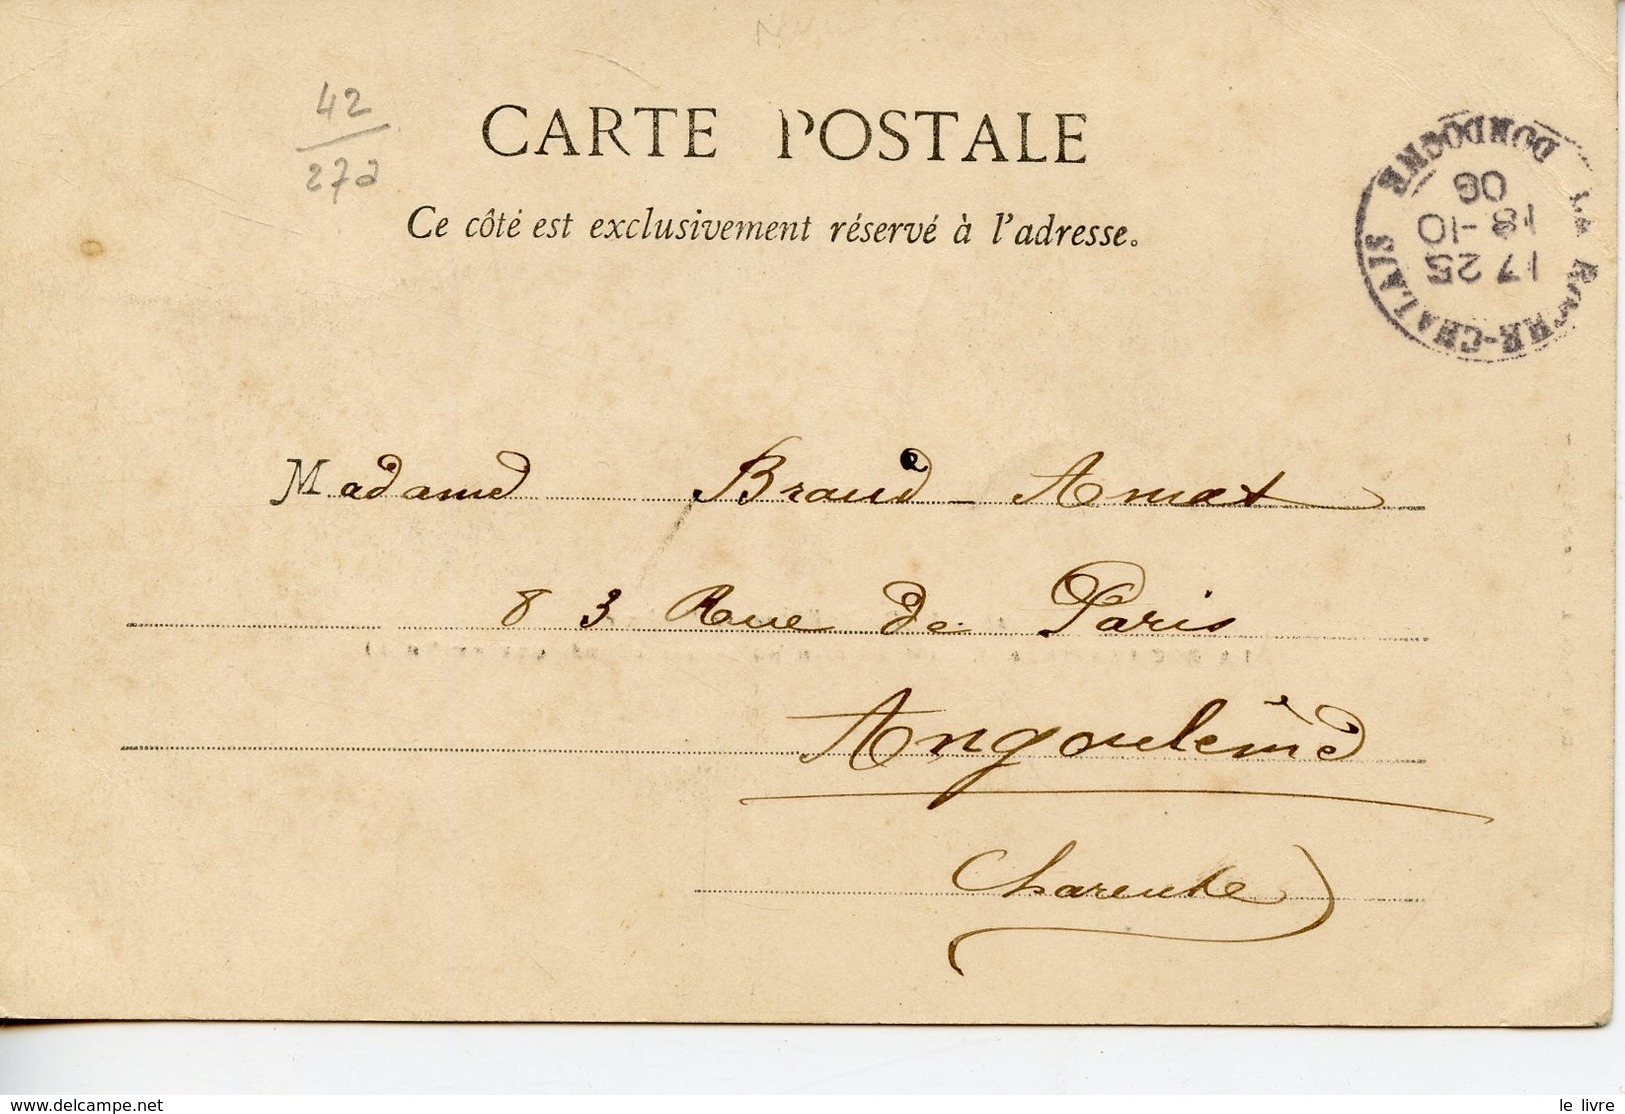 42
27a
CARTE POSTALE
Ce côté est exclusivement réservé à l'adresse.
LA ROCHE-CHALAIS
17 25
18-10
06
DORDOGNE
Madame Braud-Amat
83 Rue de Paris
Angoulême
Charente
www.delcampe.net
le livre